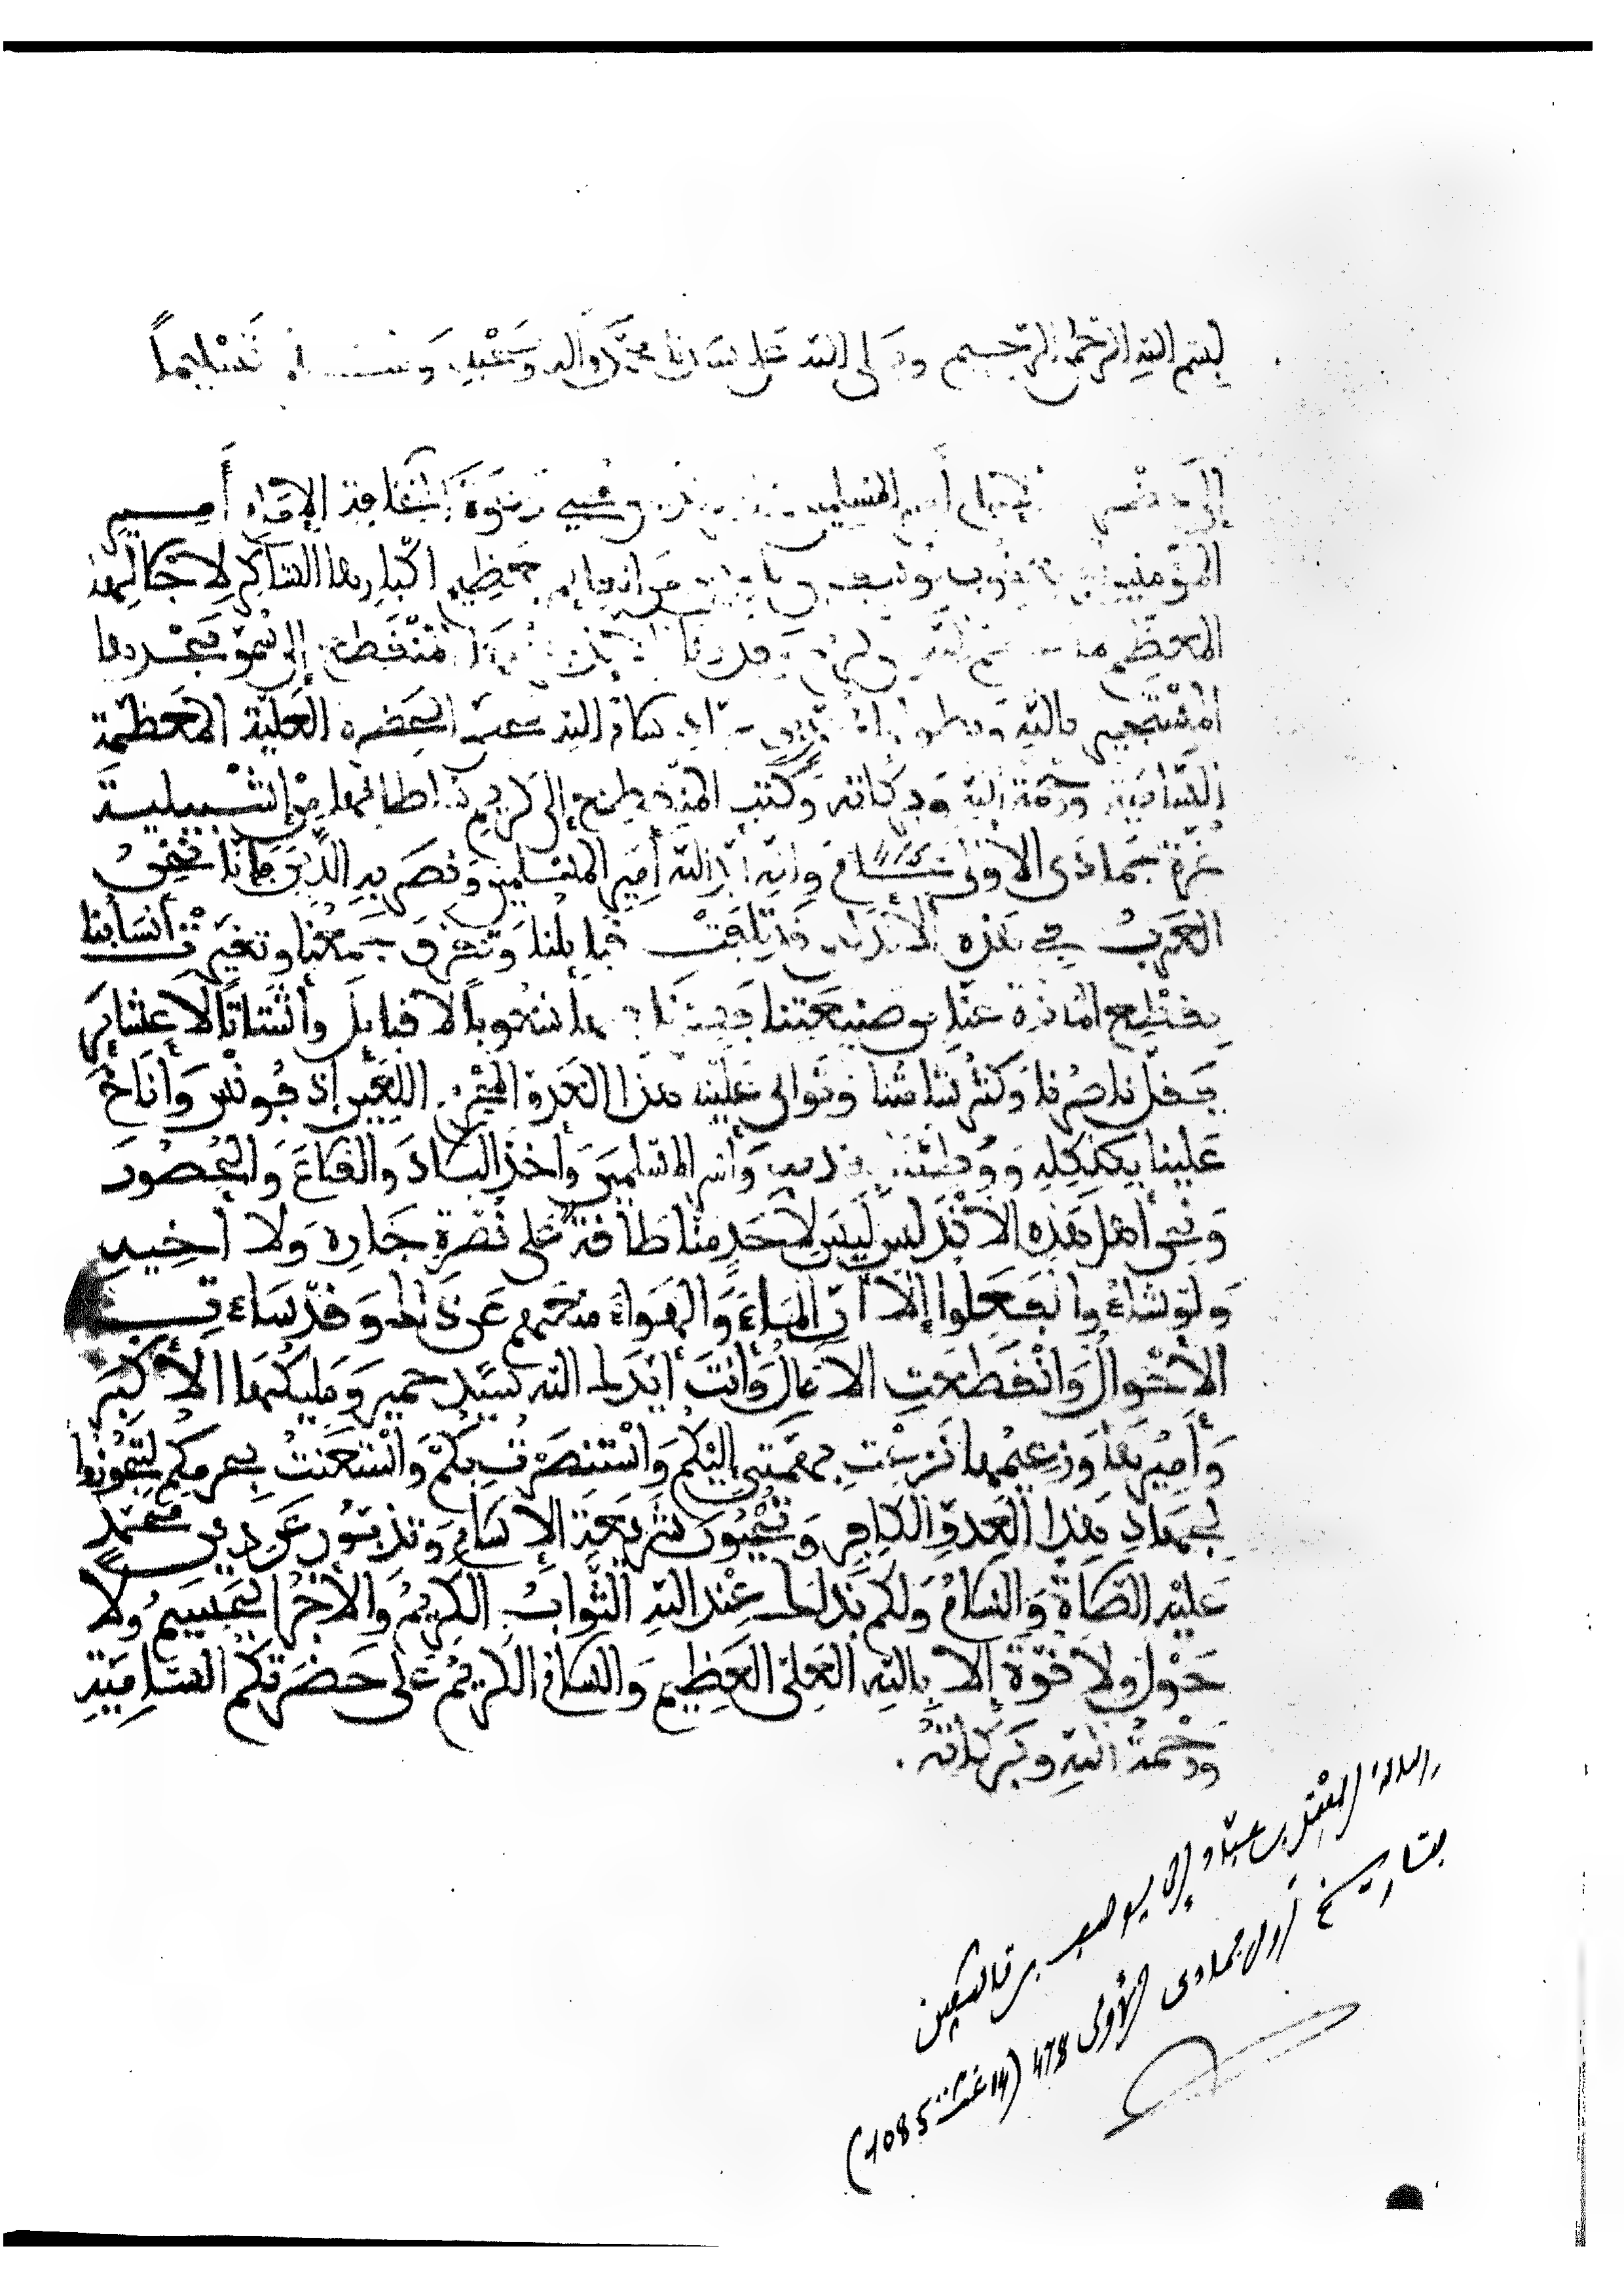 بسم الله الرحمن الرحيم وصلى الله على سيدنا محمد واله وصحبه وسلم تسليماً
إلى حضرة الإمام أمير المسلمين محيي دعوة الخلافة الإمام أمير
المؤمنين أبي يعقوب يوسف بن تاشفين من القائم بعظيم اكبارها الشاكر لاجلالها
المعظم ما عظم الله من كريم مقدارها المنقطع إلى سمو مجدها
المستجير بالله وبطولها سلام الله يخص الحضرة العلية المعظمة
السامية ورحمة الله وبركاته وكتب المنقطع إلى كريم سلطانها من إشبيلية
غرة جمادى الأولى وإنه أيد الله أمير المسلمين ونصر به الدين فإنا نحن
العرب في هذه الأندلس قد تلفت قبائلنا وتفرق جمعنا وتغيرت أنسابنا
بقطع المادة عنا من صنيعتنا فصرنا فيها شعوباً لا قبايل وأشتاتاً لا عشاير
فقل ناصرنا وكثر شامتنا وتوالى علينا هذا العدو المجرم اللعين إذفونش وأناخ
علينا بكلكله ووطئنا بقدمه وأسر المسلمين وأخذ البلاد والقلاع والحصون
ونحن أهل هذه الأندلس ليس لأحد منا طاقة على نصرة جاره ولا أخيه
ولو شاءوا لفعلوا إلا أن الماء والهواء منعهم عن ذلك وقد ساءت
الأحوال وانقطعت الآمال وأنت أيدك الله سيد حمير ومليكها الأكبر
وأميرها وزعيمها نزعت بهمتي إليكم واستنصرت بكم واستعنت بحرمكم لتجوزوا
لجهاد هذا العدو الكافر وتحيون شريعة الإسلام وتذبون عن دين محمد
عليه الصلاة والسلام ولكم بذلك عند الله الثواب الكريم والأجر الجسيم ولا
حول ولا قوة إلا بالله العلي العظيم والسلام الكريم على حضرتكم السامية
ورحمة الله وبركاته .
رسالة المعتمد بن عباد إلى يوسف بن تاشفين
بتاريخ أول جمادى الأولى 478 (14 غشت 1085)